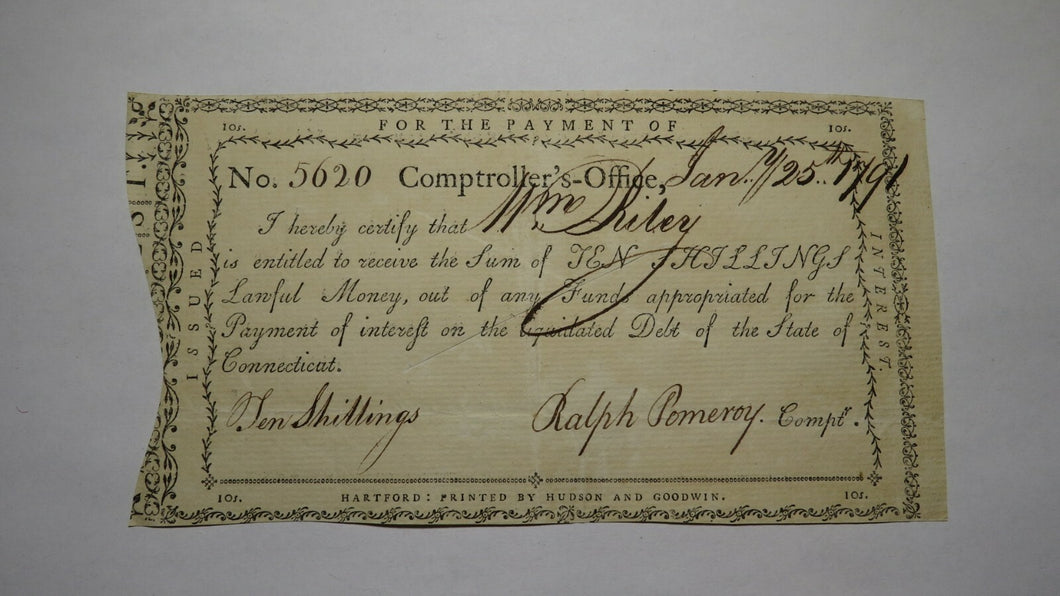 10s. FOR THE PAYMENT OF 10s.
No. 5620 Comptroller's-Office, Jan.y 25th 1791
I hereby certify that Wm Riley
is entitled to receive the Sum of TEN SHILLINGS
Lawful Money, out of any Funds appropriated for the
Payment of interest on the liquidated Debt of the State of
Connecticut.
Ten Shillings Ralph Pomeroy. Comptr.
10s. HARTFORD: PRINTED BY HUDSON AND GOODWIN. 10s.
ISSUED
INTEREST.